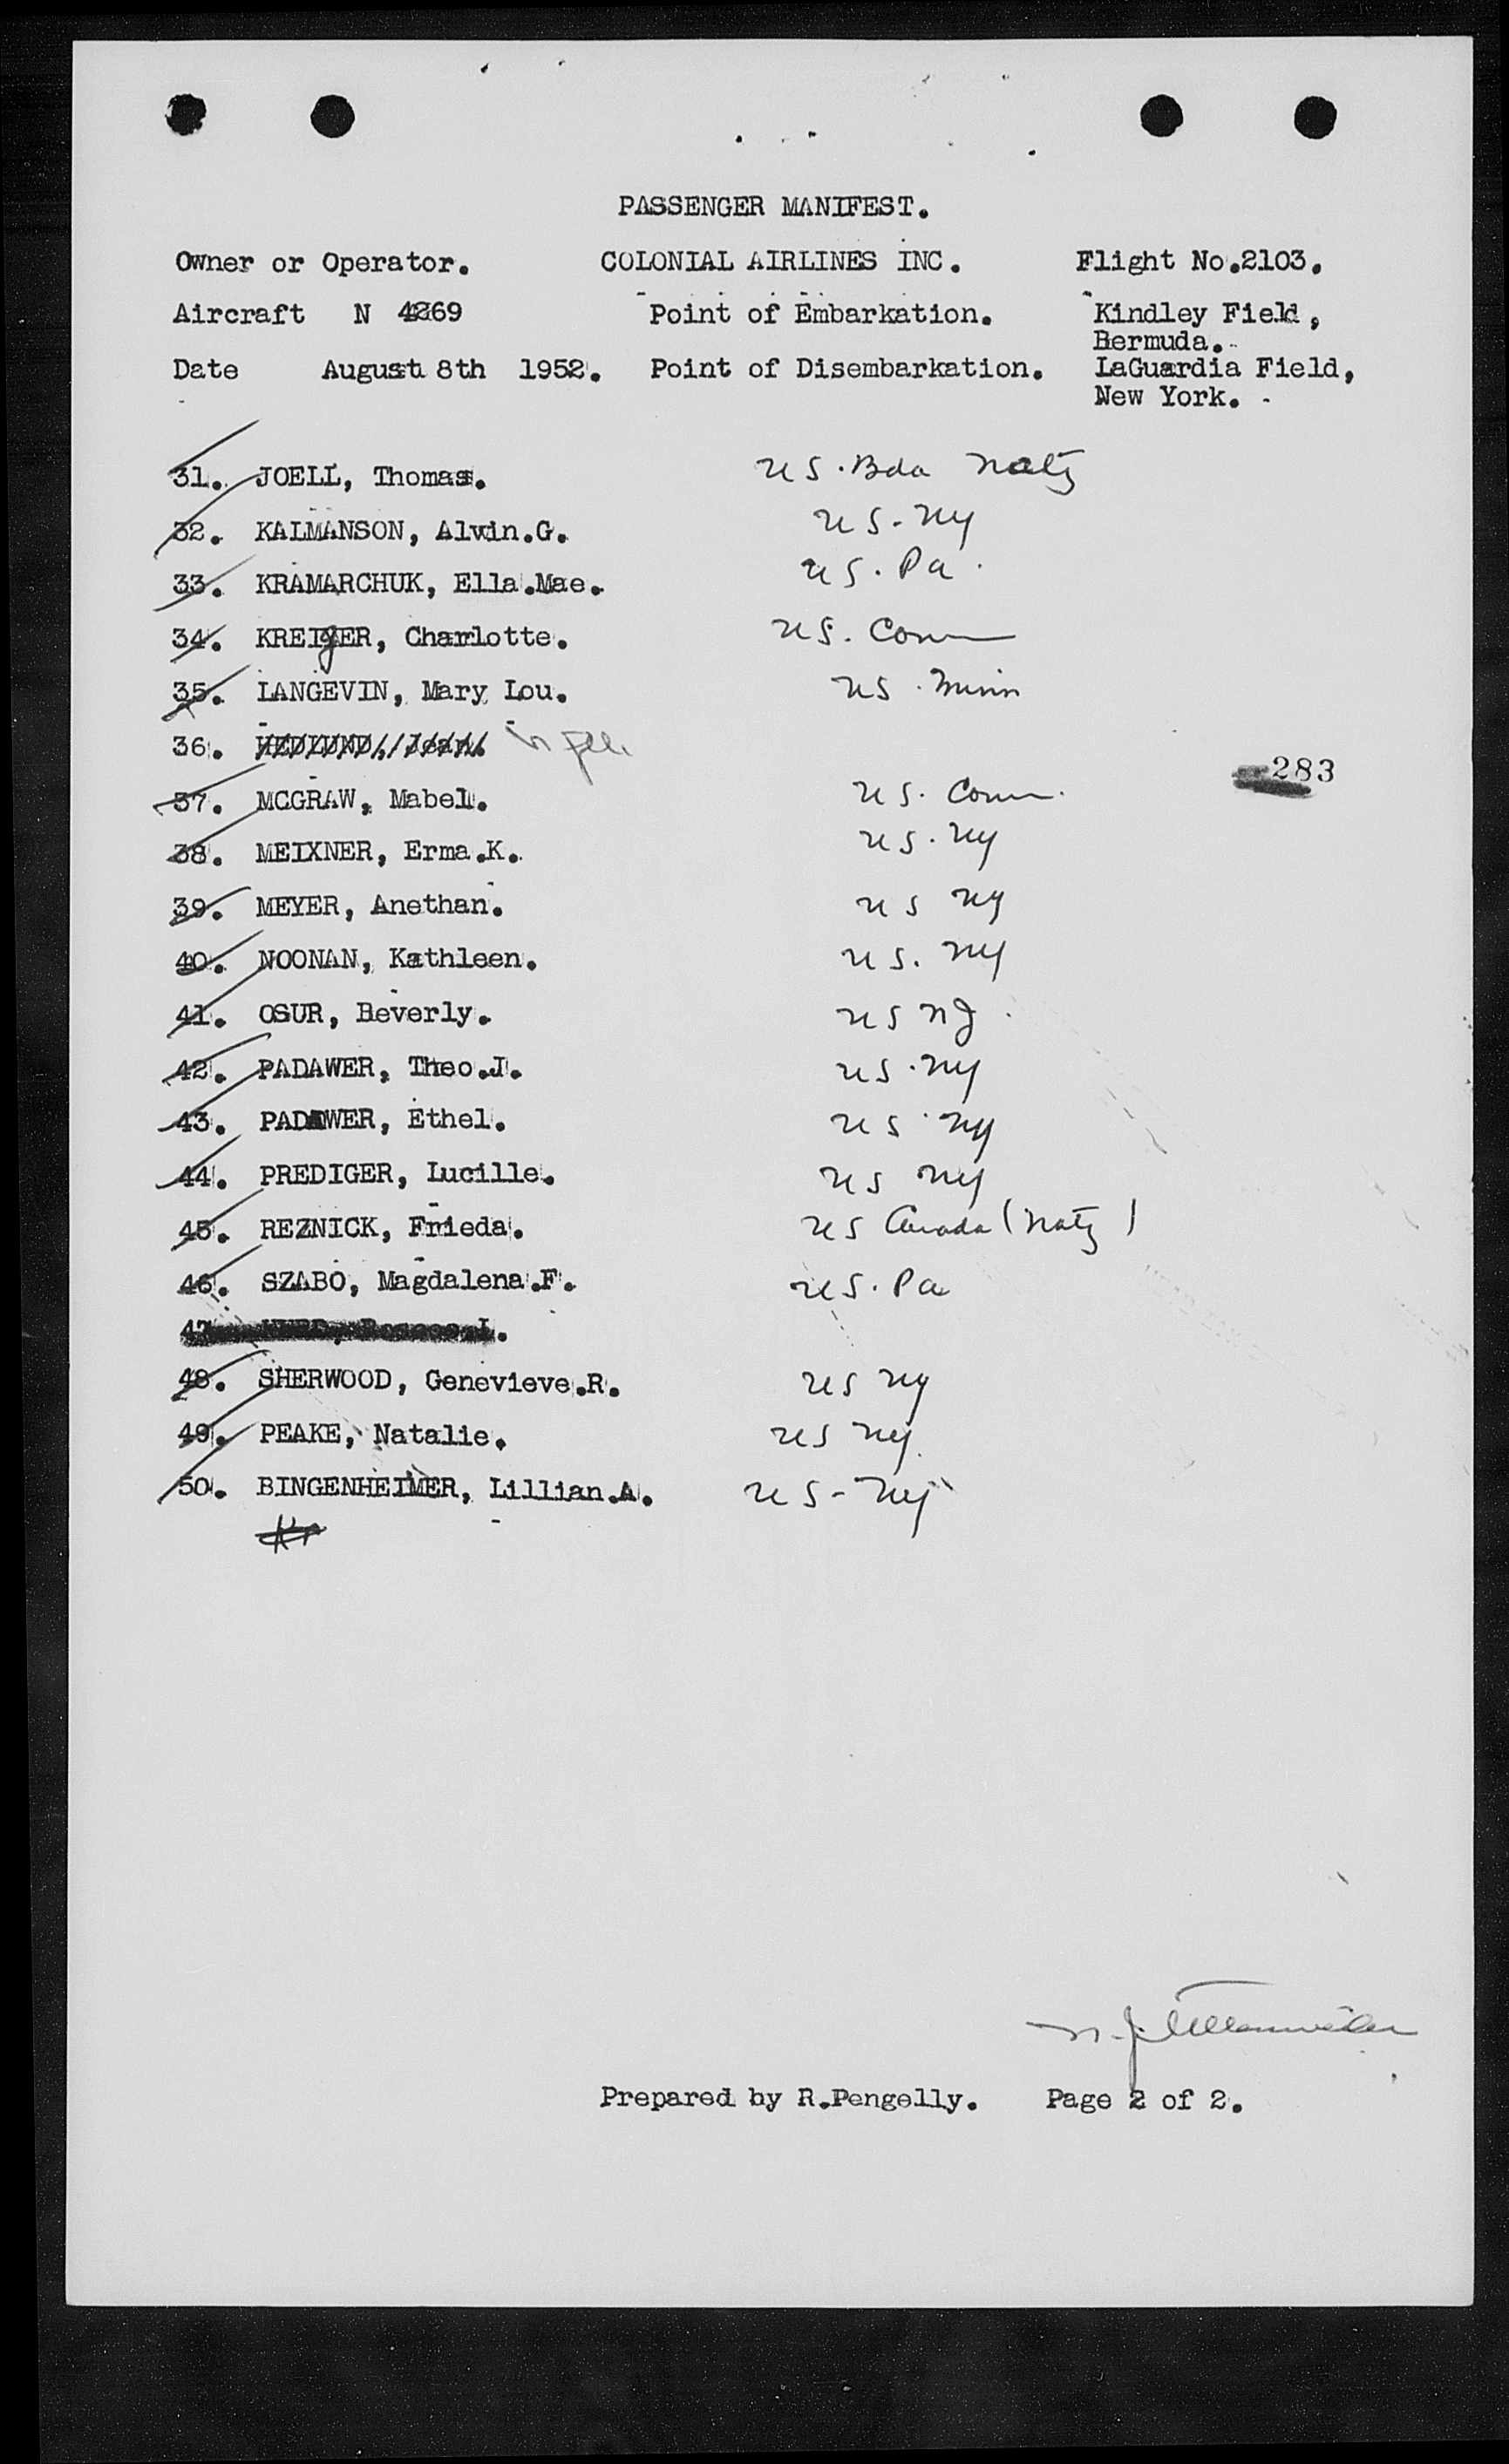 PASSENGER MANIFEST.
Owner or Operator. COLONIAL AIRLINES INC. Flight No.2103.
Aircraft N 4269 Point of Embarkation. Kindley Field,
Bermuda.
Date August 8th 1952. Point of Disembarkation. LaGuardia Field,
New York.
31. JOELL, Thomas. US. Bda Natz
32. KALMANSON, Alvin.G. US-NY
33. KRAMARCHUK, Ella.Mae. US. Pa.
34. KREIgER, Charlotte. US. Conn
35. LANGEVIN, Mary Lou. US. Minn
36. HEDLUND, Jean.
283
37. MCGRAW, Mabel. US. Conn.
38. MEIXNER, Erma.K. US. NY
39. MEYER, Anethan. US NY
40. NOONAN, Kathleen. US. NY
41. OSUR, Beverly. US NJ.
42. PADAWER, Theo.J. US. NY
43. PADAWER, Ethel. US NY
44. PREDIGER, Lucille. US NY
45. REZNICK, Frieda. US Canada (Natz)
46. SZABO, Magdalena.F. US. Pa
47.
48. SHERWOOD, Genevieve.R. US NY
49. PEAKE, Natalie. US NY
50. BINGENHEIMER, Lillian.A. US-NY
Prepared by R.Pengelly. Page 2 of 2.